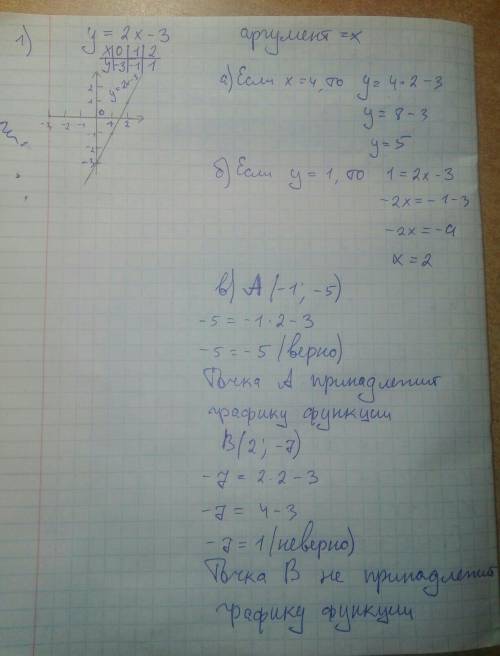 1) y = 2x - 3 аргумент = x
x 0 1 2
y -3 -1 1
y=2x-3
2
1
0
-3 -2 -1 1 2
-1
-2
-3
а) Если x = 4, то y = 4·2-3
y = 8 - 3
y = 5
б) Если y = 1, то 1 = 2x - 3
-2x = -1-3
-2x = -4
x = 2
в) A (-1; -5)
-5 = -1·2-3
-5 = -5 (верно)
Точка A принадлежит
графику функции
B (2; -7)
-7 = 2·2-3
-7 = 4-3
-7 = 1 (неверно)
Точка B не принадлежит
графику функции